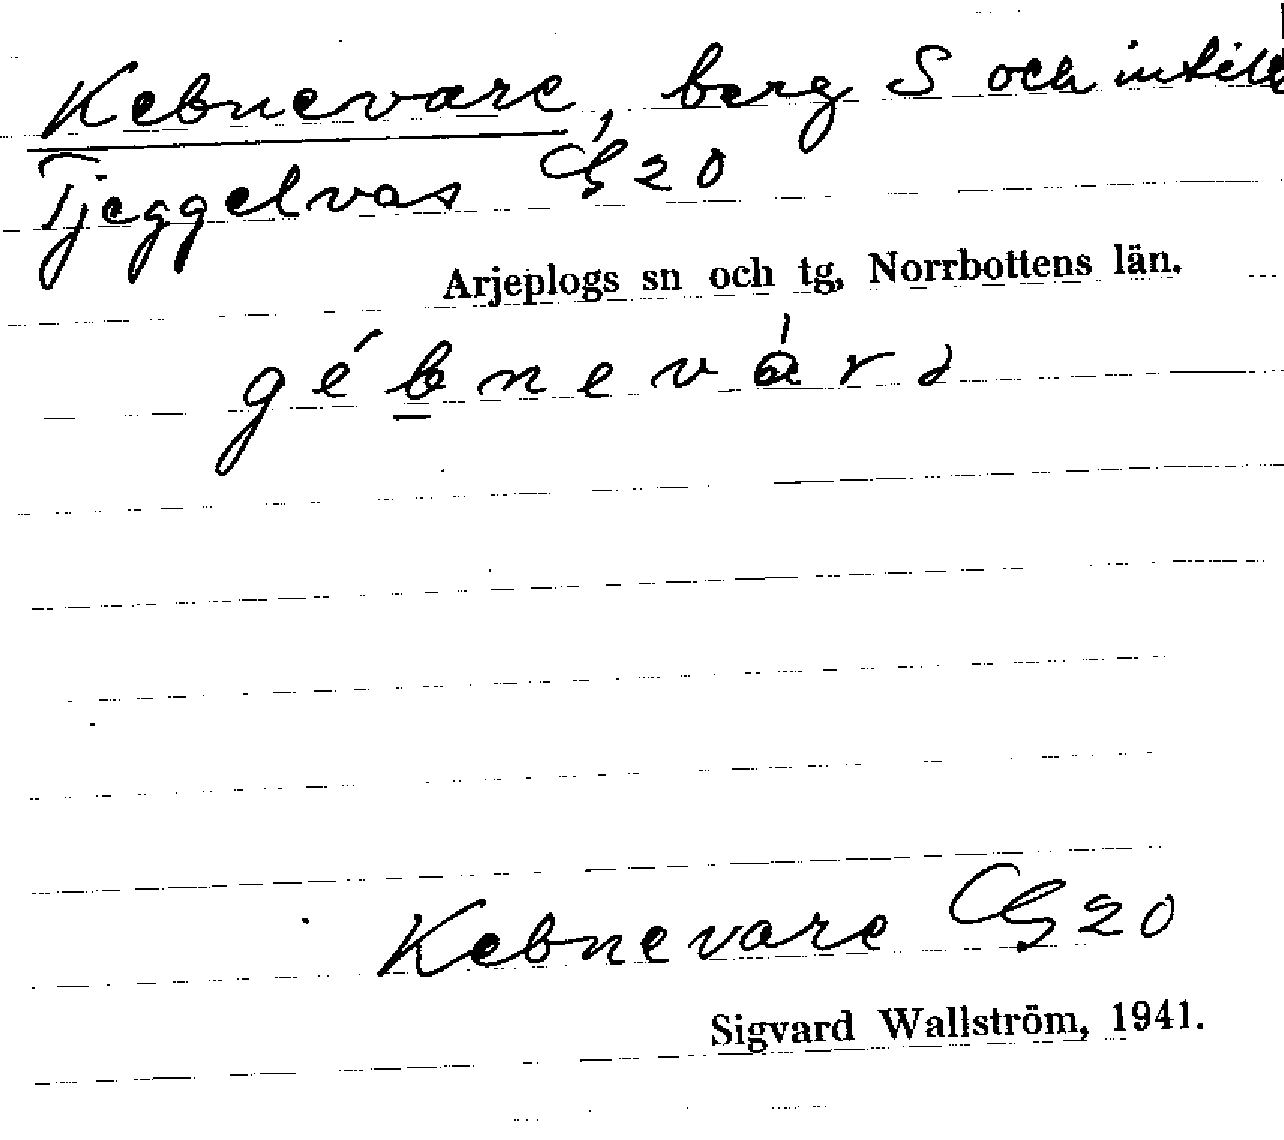 Kebnevare, berg S och intill
Tjeggelvas G20
Arjeplogs sn och tg, Norrbottens län.
gébnevárə
Kebnevare G20
Sigvard Wallström, 1941.